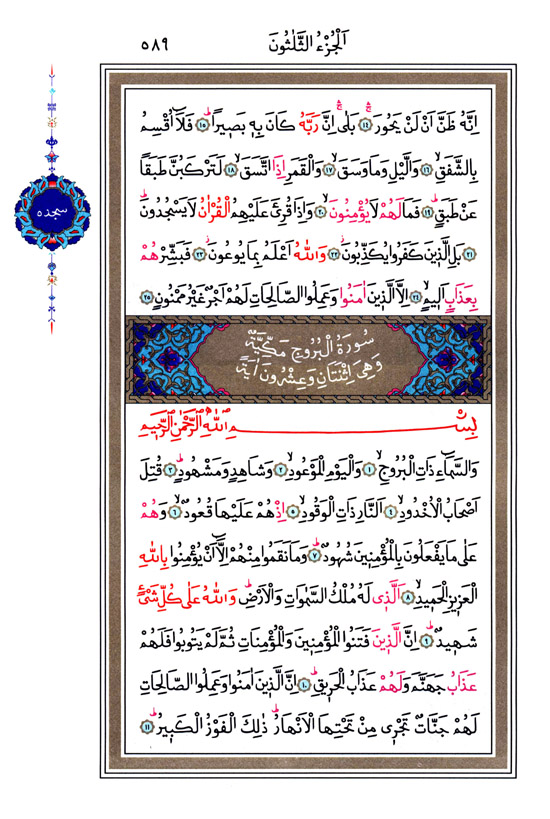 اَلْجُزْءُ الثَّلٰثُونَ
٥٨٩
اِنَّهُ ظَنَّ اَنْ لَنْ يَحُورَۚ ﴿١٤﴾ بَلٰىۚ اِنَّ رَبَّهُ كَانَ بِهِ بَصِيرًاۜ ﴿١٥﴾ فَلَٓا اُقْسِمُ
بِالشَّفَقِۙ ﴿١٦﴾ وَالَّيْلِ وَمَا وَسَقَۙ ﴿١٧﴾ وَالْقَمَرِ اِذَا اتَّسَقَۙ ﴿١٨﴾ لَتَرْكَبُنَّ طَبَقًا
عَنْ طَبَقٍۜ ﴿١٩﴾ فَمَا لَهُمْ لَا يُؤْمِنُونَۙ ﴿٢٠﴾ وَاِذَا قُرِئَ عَلَيْهِمُ الْقُرْاٰنُ لَا يَسْجُدُونَۜ
﴿٢١﴾ بَلِ الَّذِينَ كَفَرُوا يُكَذِّبُونَۘ ﴿٢٢﴾ وَاللّٰهُ اَعْلَمُ بِمَا يُوعُونَۘ ﴿٢٣﴾ فَبَشِّرْهُمْ
بِعَذَابٍ اَلِيمٍۙ ﴿٢٤﴾ اِلَّا الَّذِينَ اٰمَنُوا وَعَمِلُوا الصَّالِحَاتِ لَهُمْ اَجْرٌ غَيْرُ مَمْنُونٍ ﴿٢٥﴾
سجده
سُورَةُ الْبُرُوجِ مَكِّيَّةٌ
وَهِيَ اِثْنَتَانِ وَعِشْرُونَ اٰيَةً
بِسْمِ اللّٰهِ الرَّحْمٰنِ الرَّحِيمِ
وَالسَّمَٓاءِ ذَاتِ الْبُرُوجِۙ ﴿١﴾ وَالْيَوْمِ الْمَوْعُودِۙ ﴿٢﴾ وَشَاهِدٍ وَمَشْهُودٍۜ ﴿٣﴾ قُتِلَ
اَصْحَابُ الْاُخْدُودِۙ ﴿٤﴾ اَلنَّارِ ذَاتِ الْوَقُودِۙ ﴿٥﴾ اِذْ هُمْ عَلَيْهَا قُعُودٌۙ ﴿٦﴾ وَهُمْ
عَلٰى مَا يَفْعَلُونَ بِالْمُؤْمِنِينَ شُهُودٌۜ ﴿٧﴾ وَمَا نَقَمُوا مِنْهُمْ اِلَّٓا اَنْ يُؤْمِنُوا بِاللّٰهِ
الْعَزِيزِ الْحَمِيدِۙ ﴿٨﴾ اَلَّذِي لَهُ مُلْكُ السَّمٰوَاتِ وَالْاَرْضِۜ وَاللّٰهُ عَلٰى كُلِّ شَيْءٍ
شَهِيدٌۜ ﴿٩﴾ اِنَّ الَّذِينَ فَتَنُوا الْمُؤْمِنِينَ وَالْمُؤْمِنَاتِ ثُمَّ لَمْ يَتُوبُوا فَلَهُمْ
عَذَابُ جَهَنَّمَ وَلَهُمْ عَذَابُ الْحَرِيقِۜ ﴿١٠﴾ اِنَّ الَّذِينَ اٰمَنُوا وَعَمِلُوا الصَّالِحَاتِ
لَهُمْ جَنَّاتٌ تَجْرِي مِنْ تَحْتِهَا الْاَنْهَارُۜ ذٰلِكَ الْفَوْزُ الْكَبِيرُۜ ﴿١١﴾